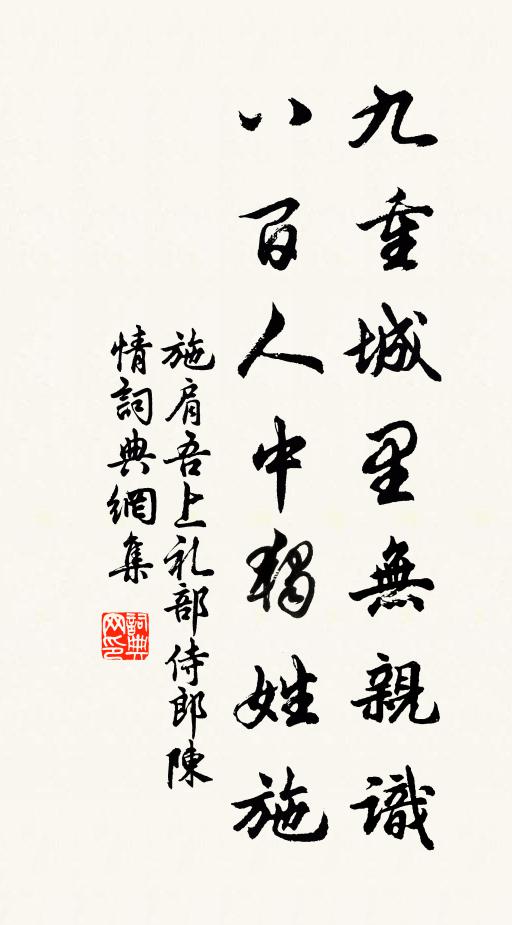 九重城里無親識
八百人中獨姓施
施肩吾上礼部侍郎陳
情詞典網集
詞典
网印